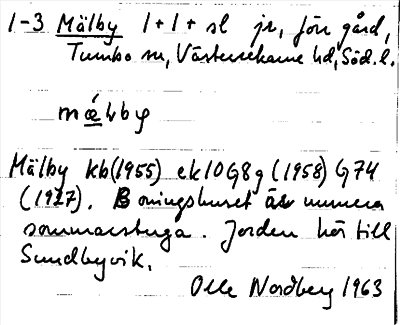 1-3 Mälby 1+1+sl jr, förr gård,
Tumbo sn, Västerrekarne hd, Söd. l.
mǽlby
Mälby kb (1955) ek 10G8g (1958) G74
(1927). Boningshuset är numera
sommarstuga. Jorden hör till
Sundbyvik.
Olle Nordberg 1963